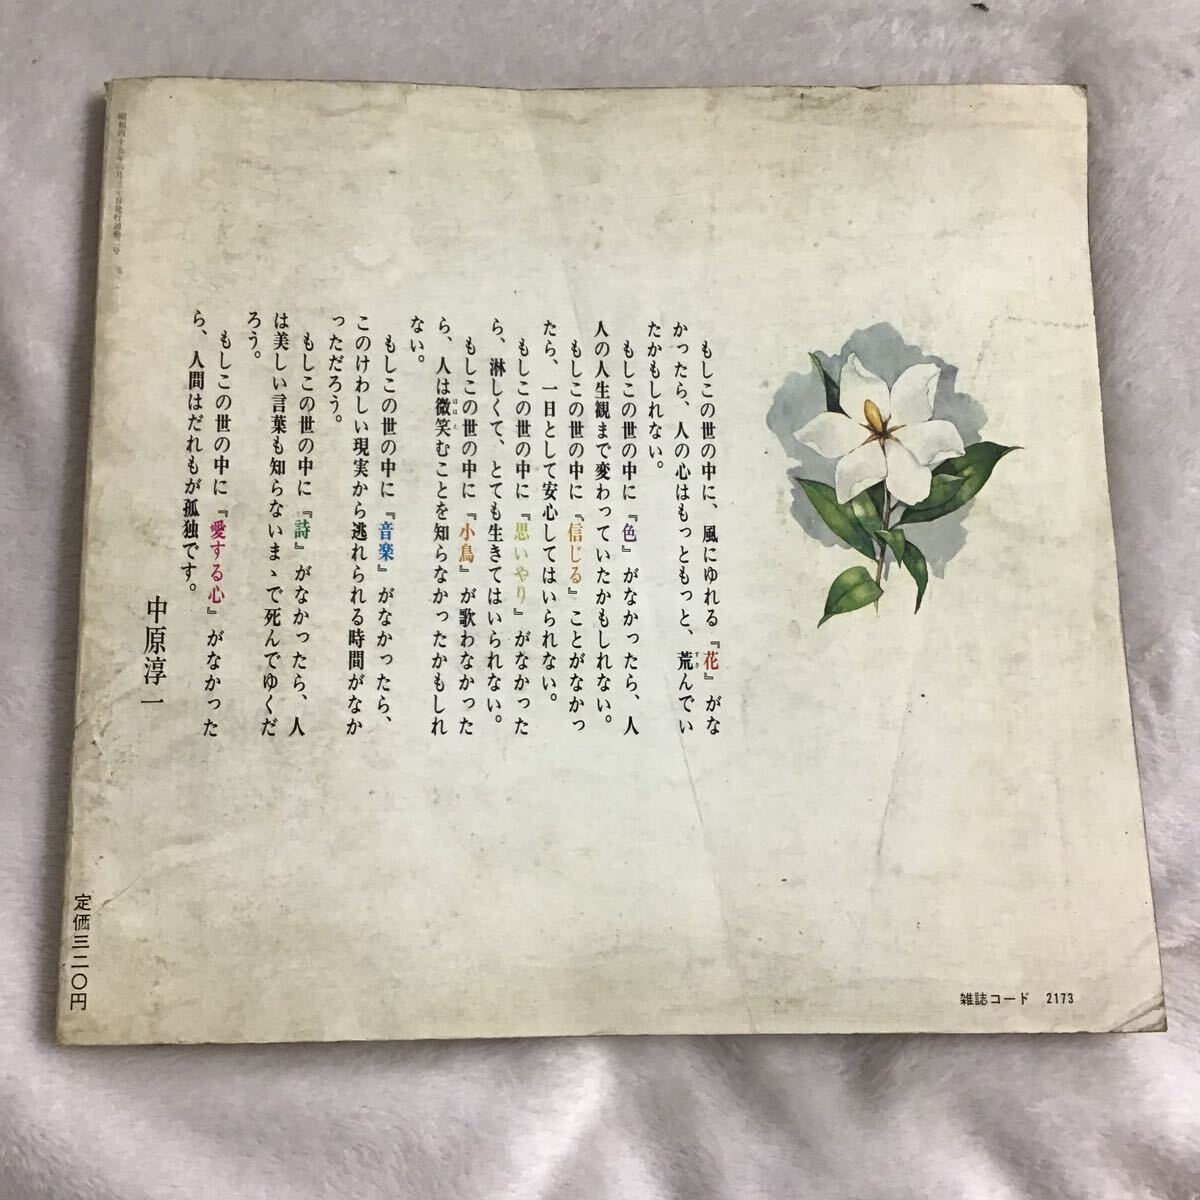 もしこの世の中に、風にゆれる『花』がな
かったら、人の心はもっともっと、荒んでい
たかもしれない。
もしこの世の中に『色』がなかったら、人
人の人生観まで変わっていたかもしれない。
もしこの世の中に『信じる』ことがなかっ
たら、一日として安心してはいられない。
もしこの世の中に『思いやり』がなかった
ら、淋しくて、とても生きてはいられない。
もしこの世の中に『小鳥』が歌わなかった
ら、人は微笑むことを知らなかったかもしれ
ない。
もしこの世の中に『音楽』がなかったら、
このけわしい現実から逃れられる時間がなか
っただろう。
もしこの世の中に『詩』がなかったら、人
は美しい言葉も知らないまゝで死んでゆくだ
ろう。
もしこの世の中に『愛する心』がなかった
ら、人間はだれもが孤独です。
中原淳一
定価三二〇円
雑誌コード 2173